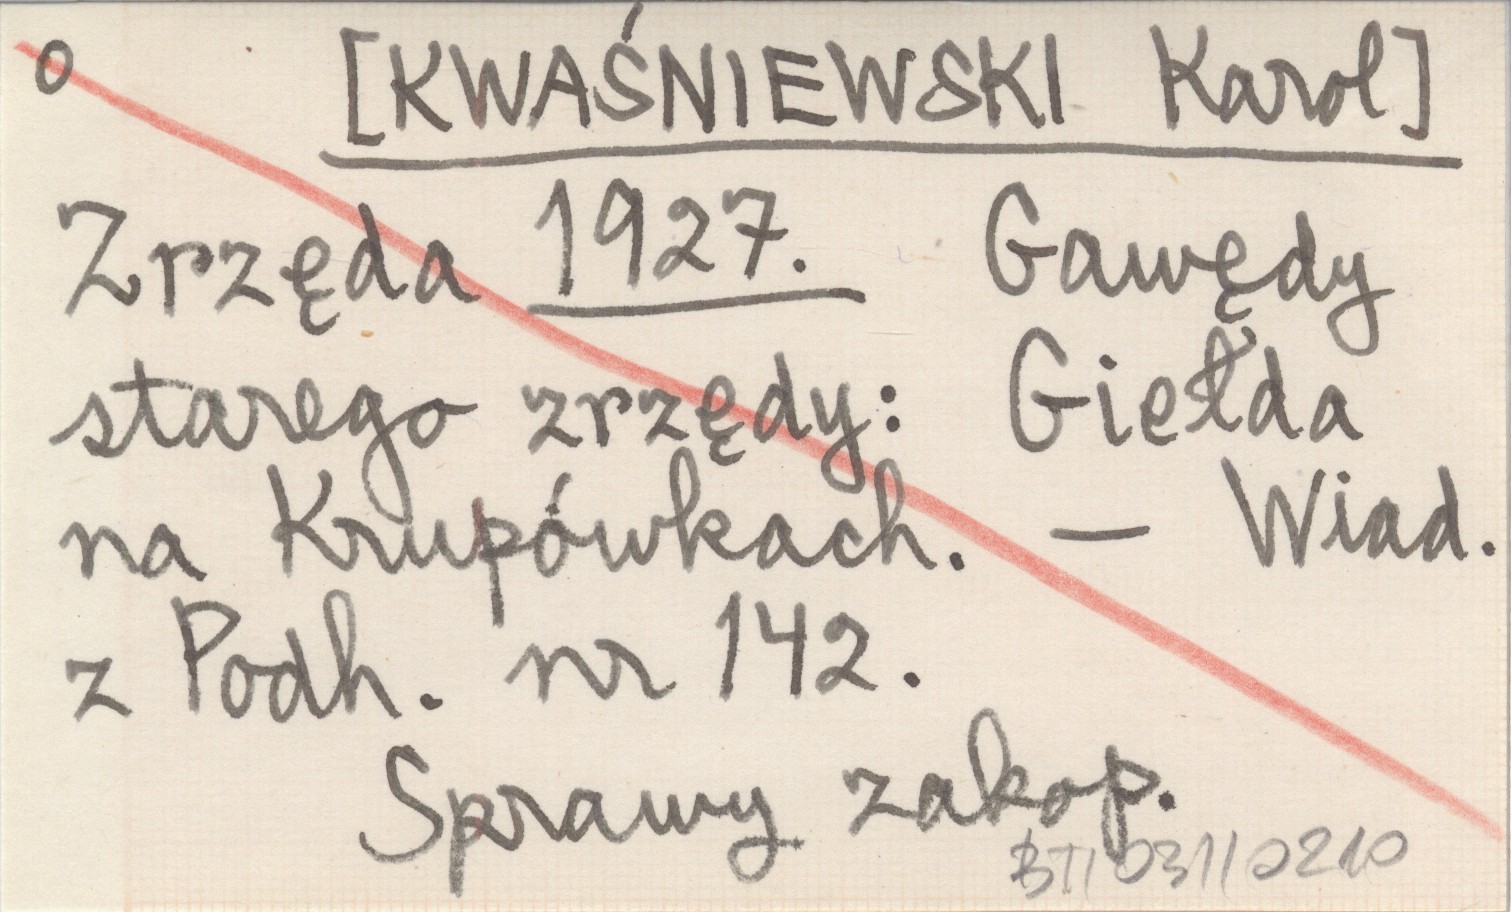 o [KWAŚNIEWSKI Karol]
Zrzęda 1927. Gawędy
starego zrzędy: Giełda
na Krupówkach. — Wiad.
z Podh. nr 142.
Sprawy zakop.
BT/031/0210